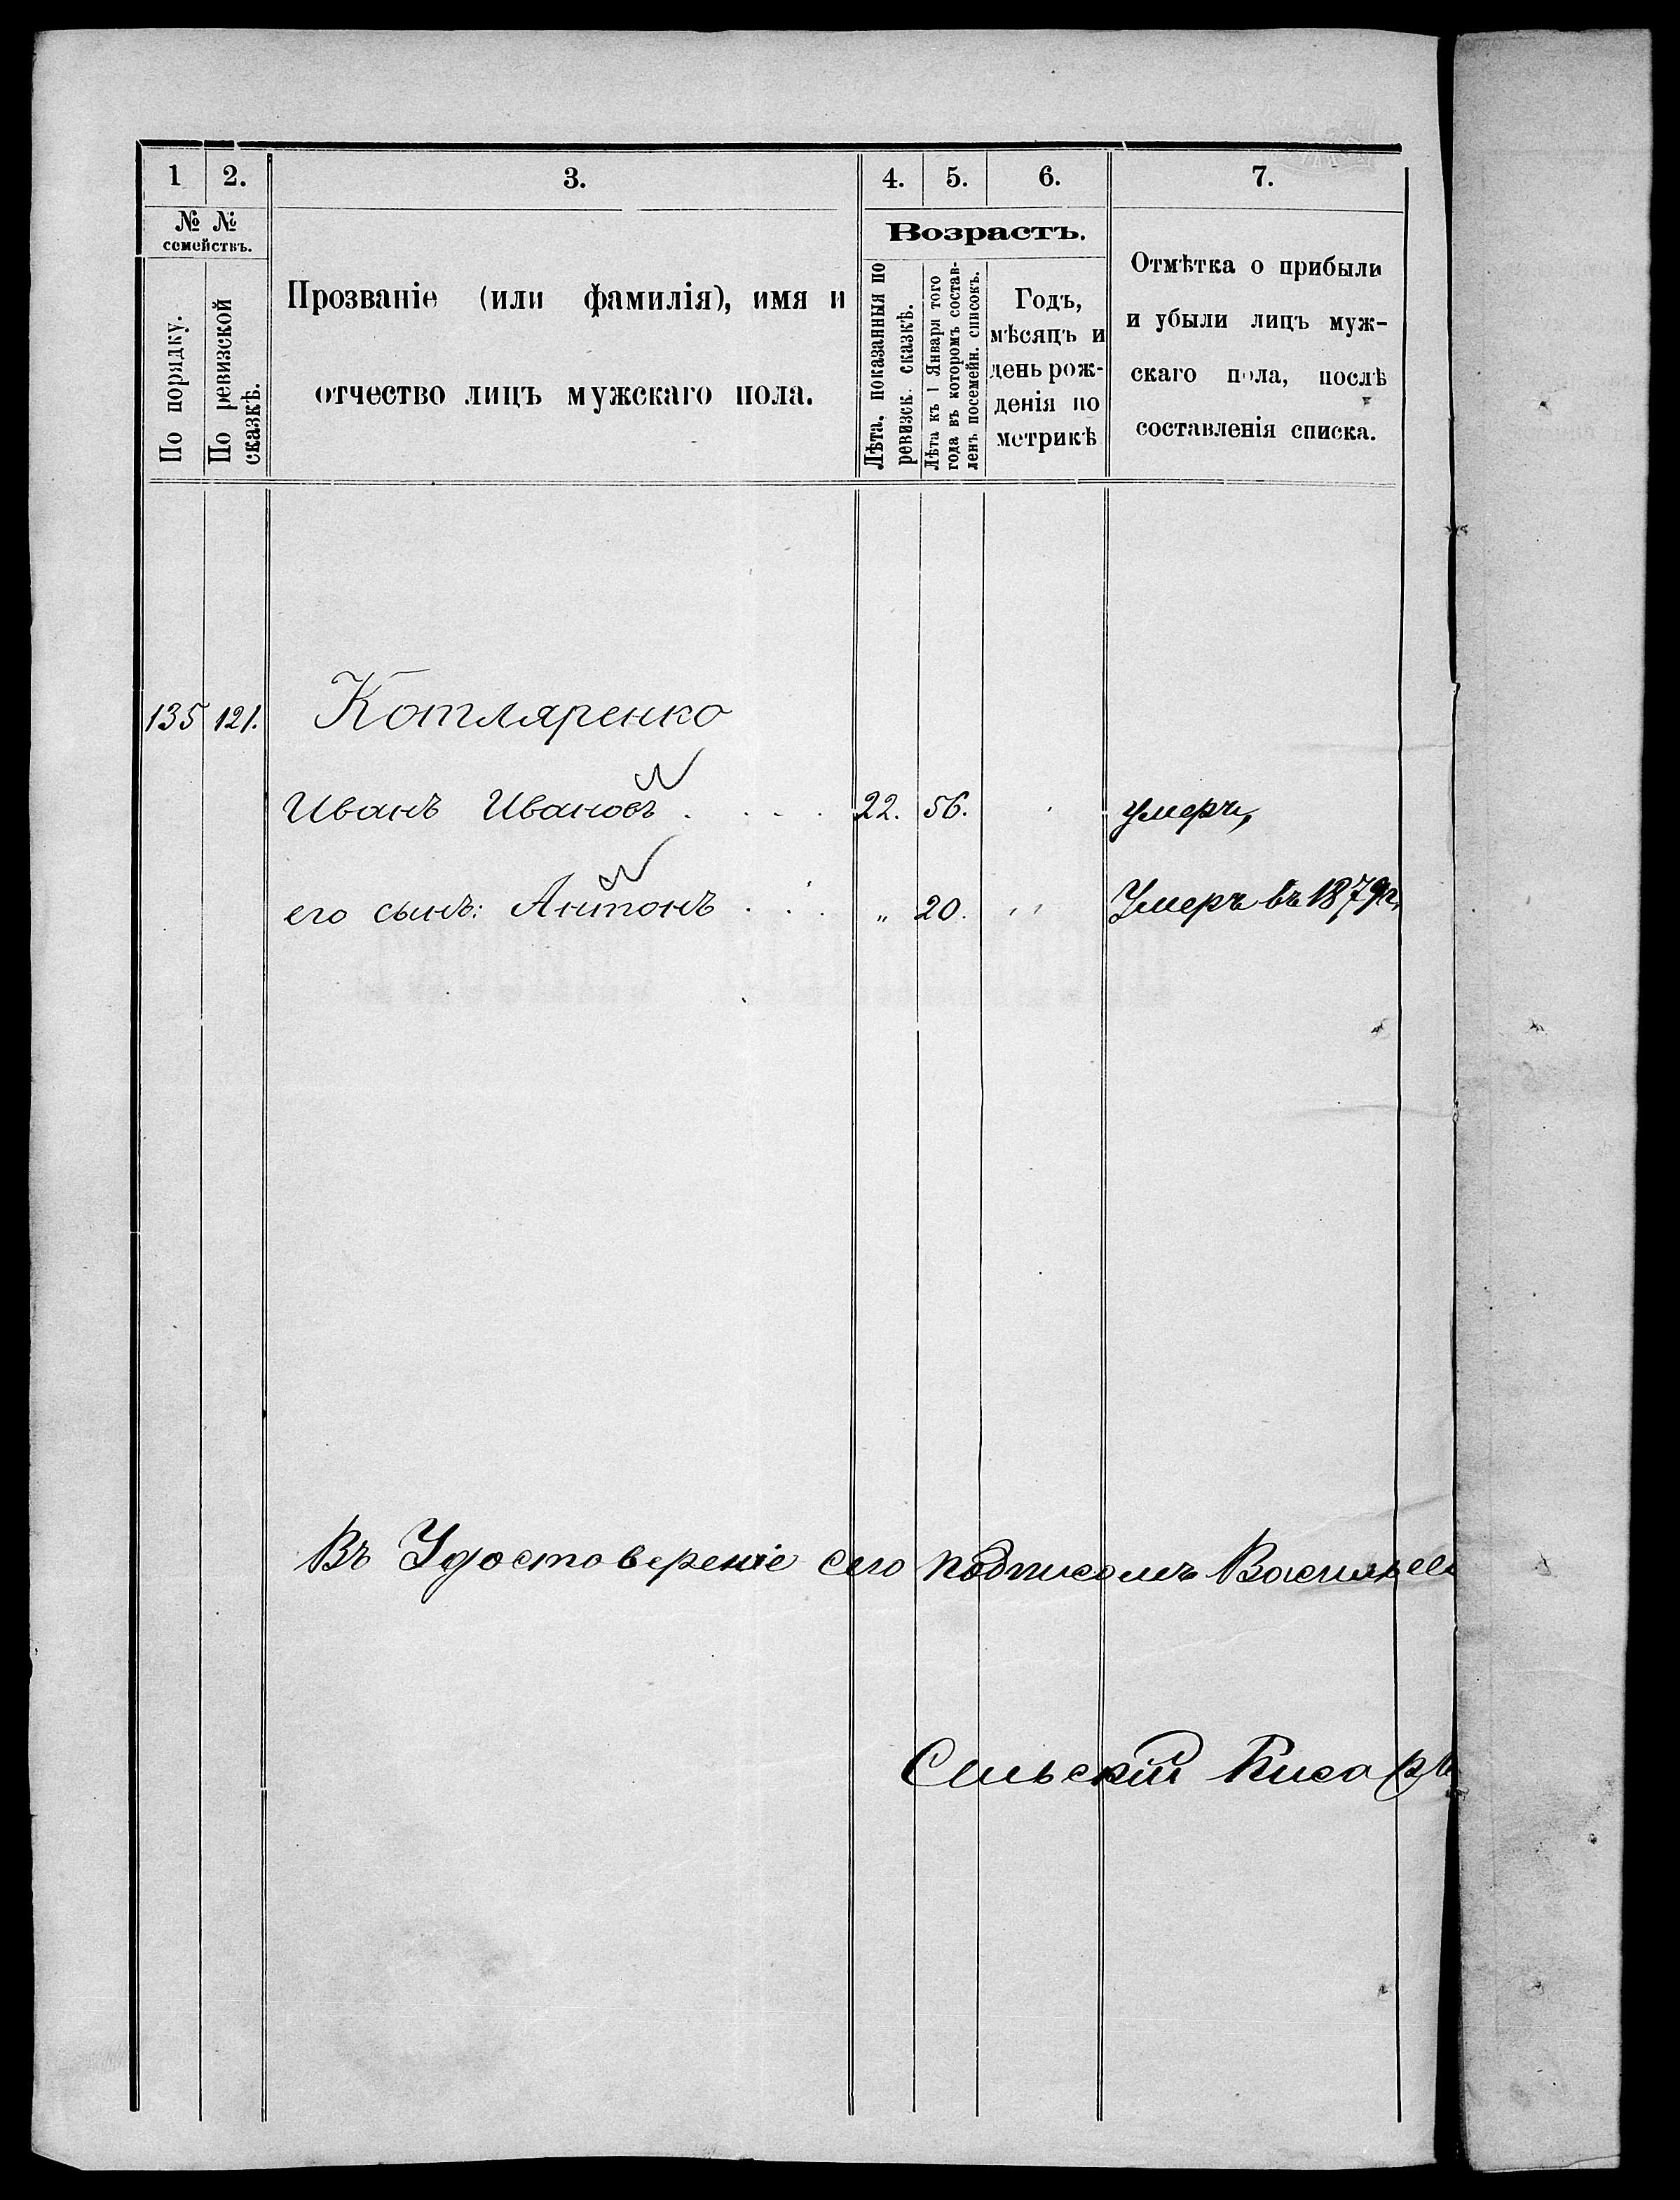 1 2. 3. 4. 5. 6. 7.
№ №
семействъ.
По порядку.
По ревизской
сказкѣ.
Прозваніе (или фамилія), имя и
отчество лицъ мужскаго пола.
Возрастъ.
Лѣта, показанныя по
ревизск. сказкѣ.
Лѣта къ 1 Января того
года въ которомъ состав-
ленъ посемейн. списокъ.
Годъ,
мѣсяцъ и
день рож-
денія по
метрикѣ
Отмѣтка о прибыли
и убыли лицъ муж-
скаго пола, послѣ
составленія списка.
135 121. Котляренко
Иванъ Ивановъ . . . . 22. 56. умеръ,
его сынъ: Антонъ . . . „ 20. Умеръ въ 1879г.
Въ Удостовереніе сего подписомъ
Сельскій Писарь